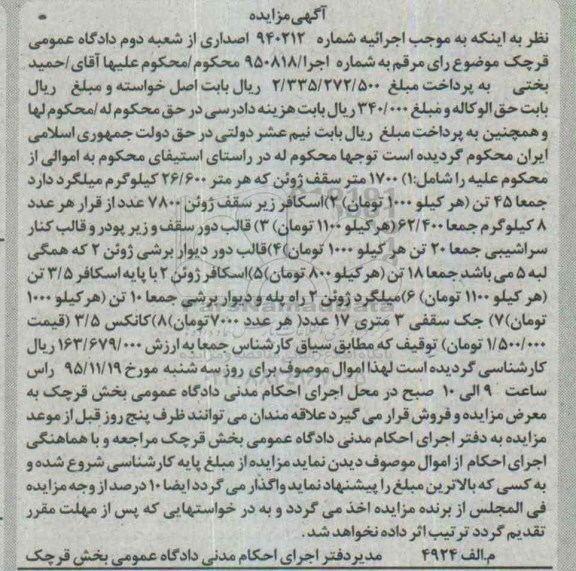 آگهی مزایده
نظر به اینکه به موجب اجرائیه شماره ۹۴۰۲۱۲ اصداری از شعبه دوم دادگاه عمومی
قرچک موضوع رای مرقم به شماره اجرا/۹۵۰۸۱۸ محکوم/محکوم علیها آقای/حمید
بختی به پرداخت مبلغ ۲/۳۳۵/۲۷۲/۵۰۰ ریال بابت اصل خواسته و مبلغ ریال
بابت حق الوکاله و مبلغ ۳۴۰/۰۰۰ ریال بابت هزینه دادرسی در حق محکوم له/محکوم لها
و همچنین به پرداخت مبلغ ریال بابت نیم عشر دولتی در حق دولت جمهوری اسلامی
ایران محکوم گردیده است توجها محکوم له در راستای استیفای محکوم به اموالی از
محکوم علیه را شامل:۱) ۱۷۰۰ متر سقف ژوئن که هر متر ۲۶/۶۰۰ کیلوگرم میلگرد دارد
جمعا ۴۵ تن (هر کیلو ۱۰۰۰ تومان) ۲)اسکافر زیر سقف ژوئن ۷۸۰۰ عدد از قرار هر عدد
۸ کیلوگرم جمعا ۶۲/۴۰۰(هر کیلو ۱۱۰۰ تومان) ۳) قالب دور سقف و زیر پودر و قالب کنار
سراشیبی جمعا ۲۰ تن هر کیلو ۱۰۰۰ تومان)۴)قالب دور دیوار برشی ژوئن ۲ که همگی
لبه ۵ می باشد جمعا ۱۸ تن (هر کیلو ۸۰۰ تومان)۵)اسکافر ژوئن ۲ با پایه اسکافر ۳/۵ تن
(هر کیلو ۱۱۰۰ تومان) ۶)میلگرد ژوئن ۲ راه پله و دیوار برشی جمعا ۱۰ تن (هر کیلو ۱۰۰۰
تومان)۷) جک سقفی ۳ متری ۱۷ عدد( هر عدد ۷۰۰۰تومان)۸)کانکس ۳/۵ (قیمت
۱/۵۰۰/۰۰۰ تومان) توقیف که مطابق سیاق کارشناس جمعا به ارزش ۱۶۳/۶۷۹/۰۰۰ ریال
کارشناسی گردیده است لهذا اموال موصوف برای روز سه شنبه مورخ ۹۵/۱۱/۱۹ راس
ساعت ۹ الی ۱۰ صبح در محل اجرای احکام مدنی دادگاه عمومی بخش قرچک به
معرض مزایده و فروش قرار می گیرد علاقه مندان می توانند ظرف پنج روز قبل از موعد
مزایده به دفتر اجرای احکام مدنی دادگاه عمومی بخش قرچک مراجعه و با هماهنگی
اجرای احکام از اموال موصوف دیدن نماید مزایده از مبلغ پایه کارشناسی شروع شده و
به کسی که بالاترین مبلغ را پیشنهاد نماید واگذار می گردد ایضا ۱۰ درصد از وجه مزایده
فی المجلس از برنده مزایده اخذ می گردد و به در خواستهایی که پس از مهلت مقرر
تقدیم گردد ترتیب اثر داده نخواهد شد.
م.الف ۴۹۲۴ مدیر دفتر اجرای احکام مدنی دادگاه عمومی بخش قرچک